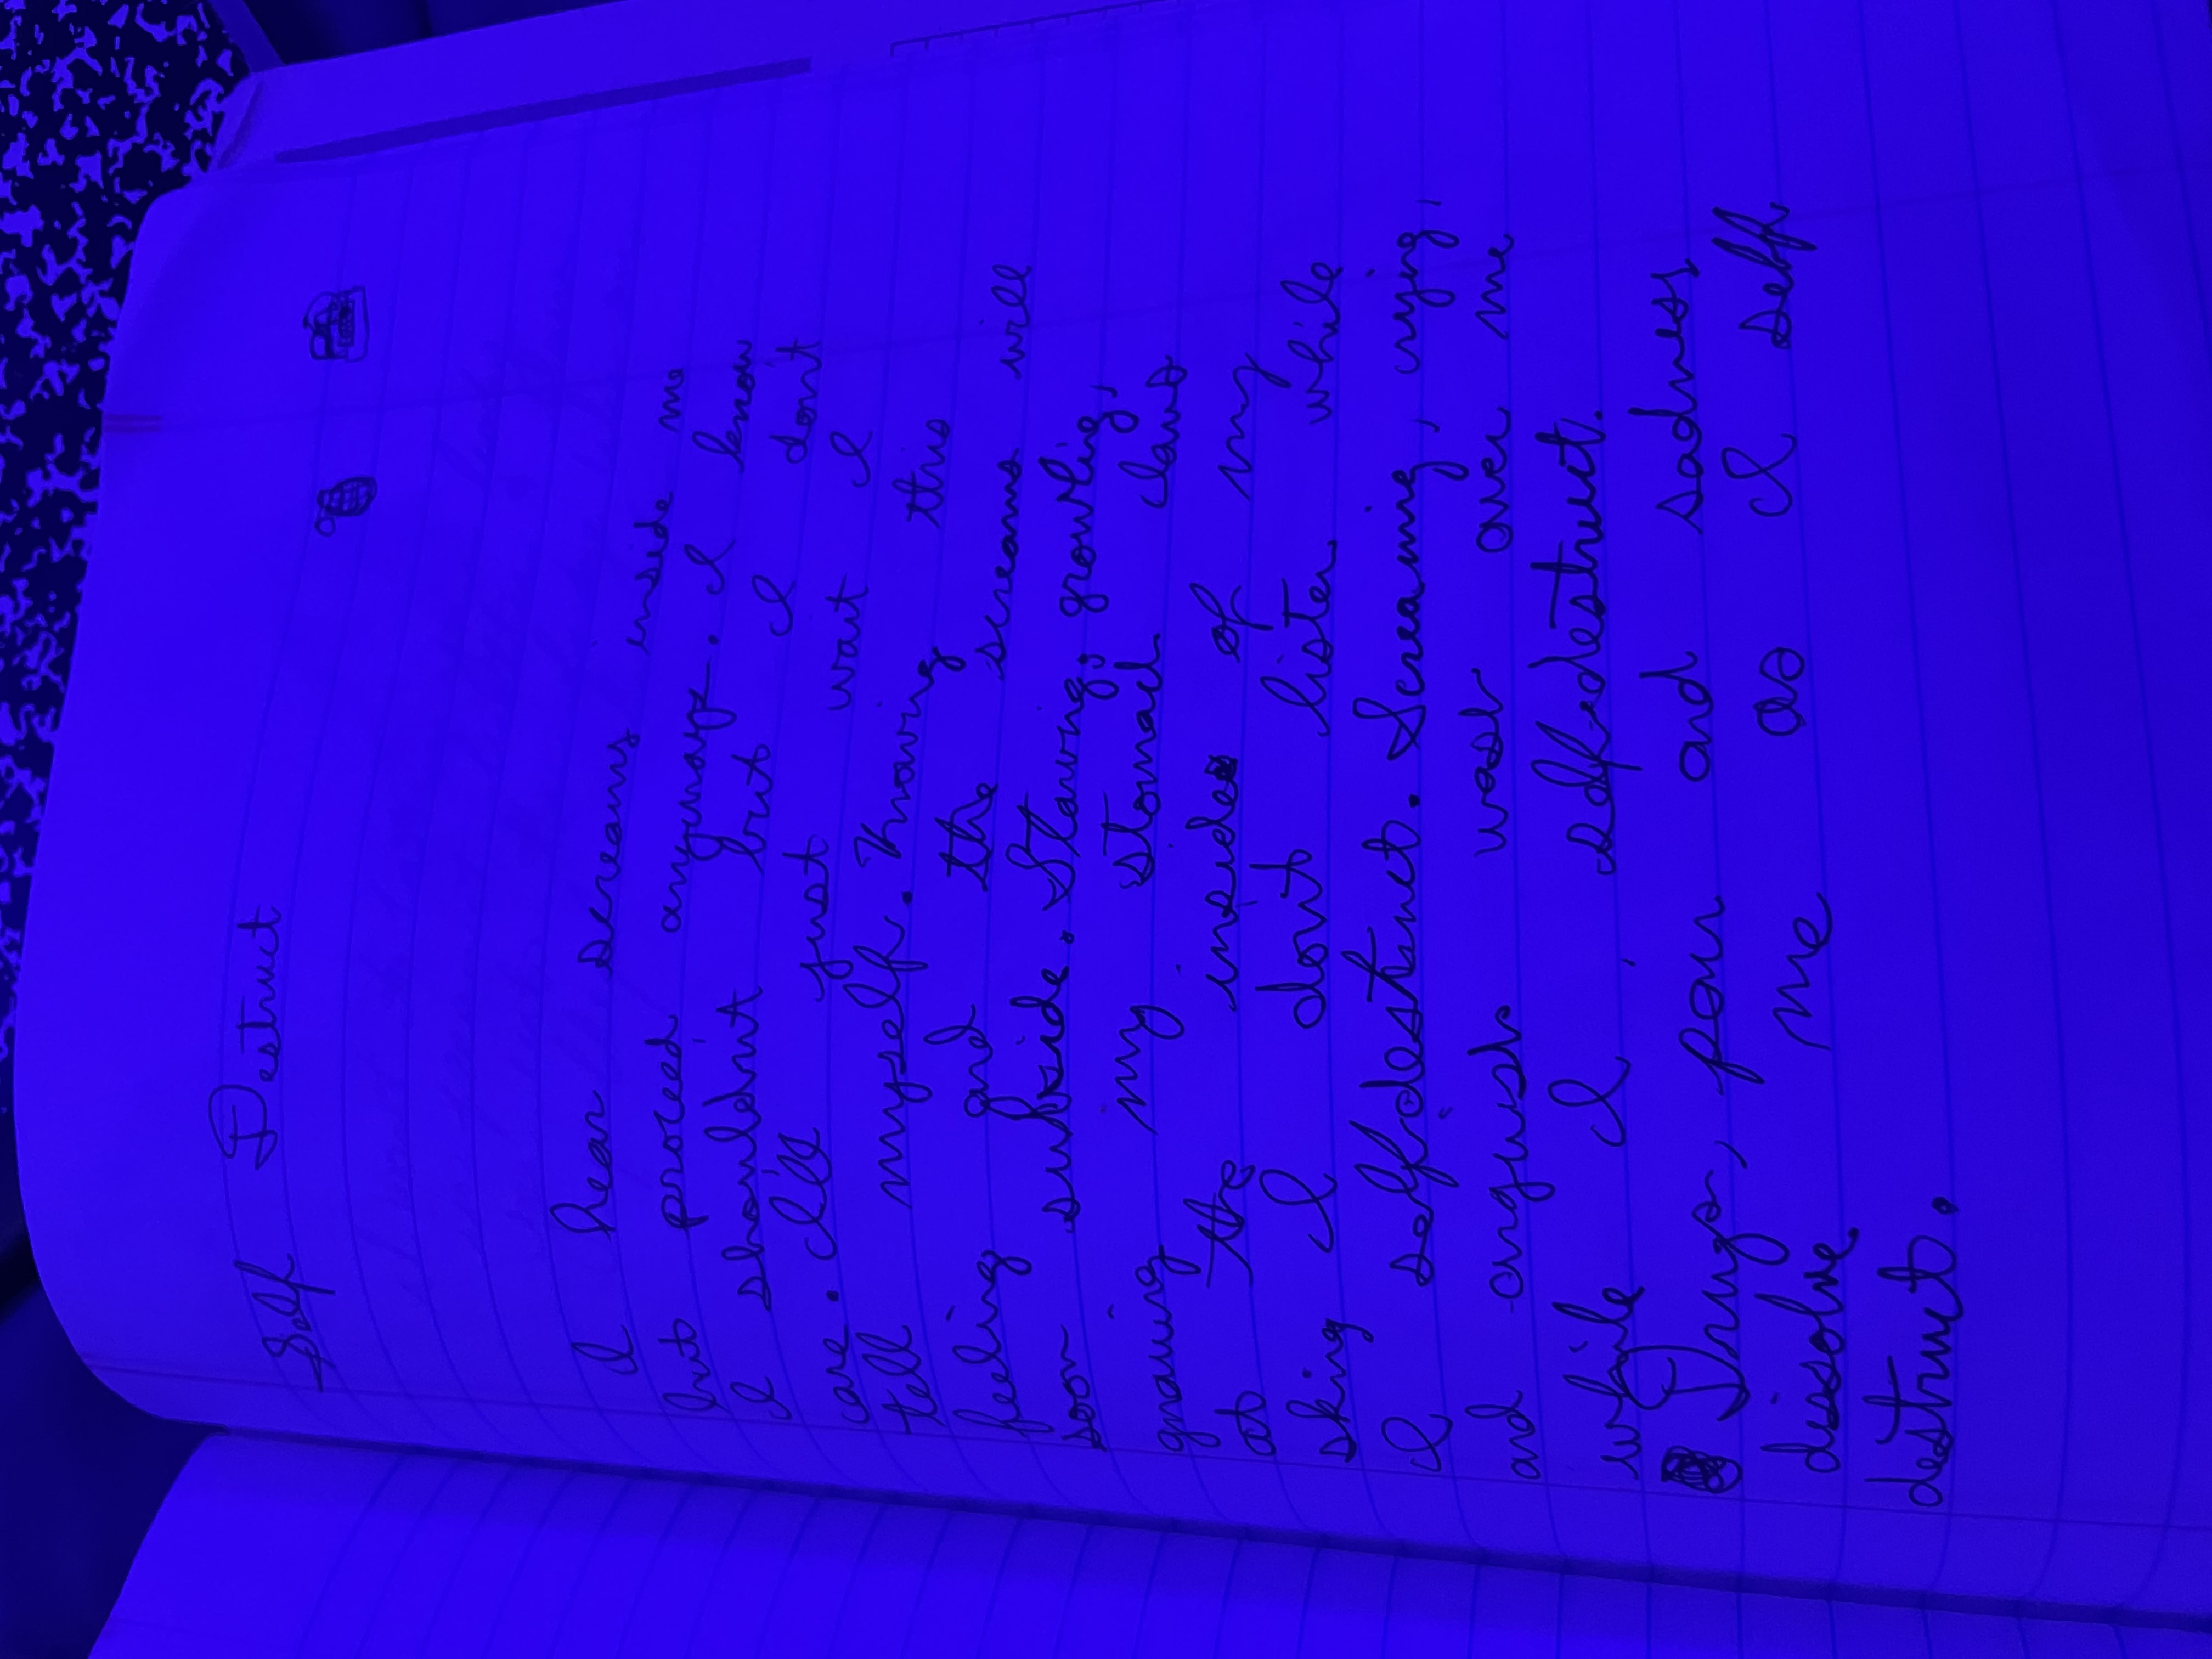 Self Destruct
I hear screams inside me
but proceed anyway. I know
I shouldnt but I dont
care. Ill just wait I
tell myself. Knowing this
feeling and the screams will
soon subside. Starving, growling,
gnawing my stomach claws
at the insides of my
sking I don't listen while
I self destruct. Screaming, crying,
and anguish wash over me
while I self-destruct.
Drugs, pain and sadness
disolve me as I self
destruct.